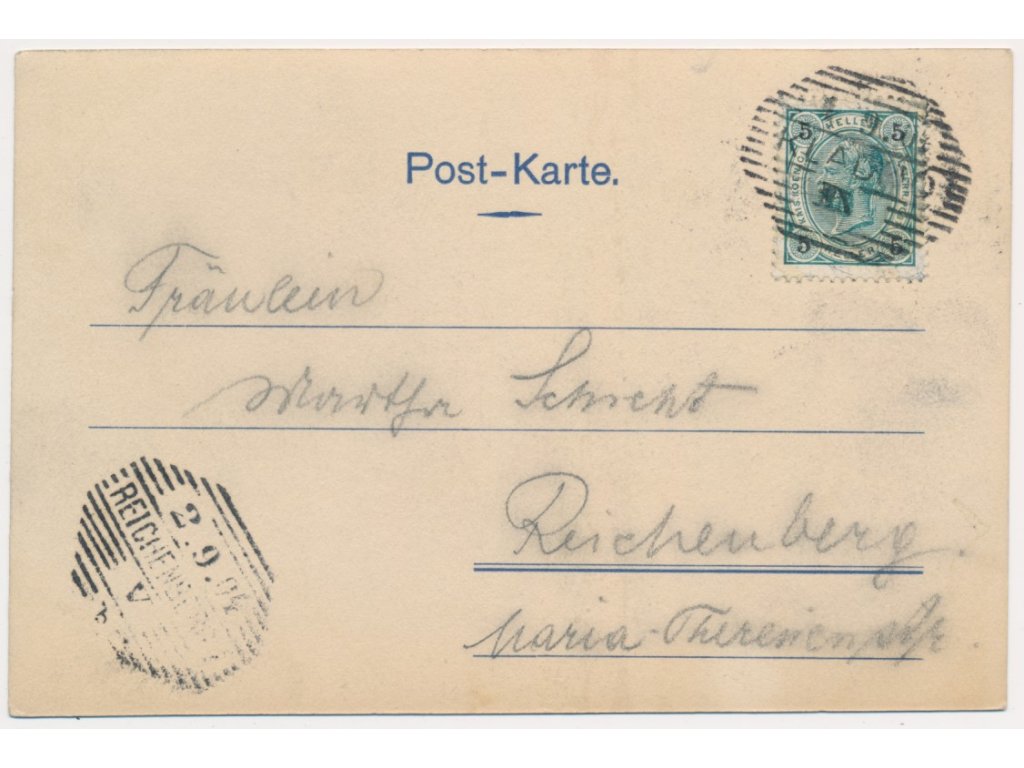 Post-Karte.
5 HELLER 5
5 5
Fräulein
Martha Schicht
Reichenberg.
2.9.04
REICHENBERG
Maria-Theresienstr.